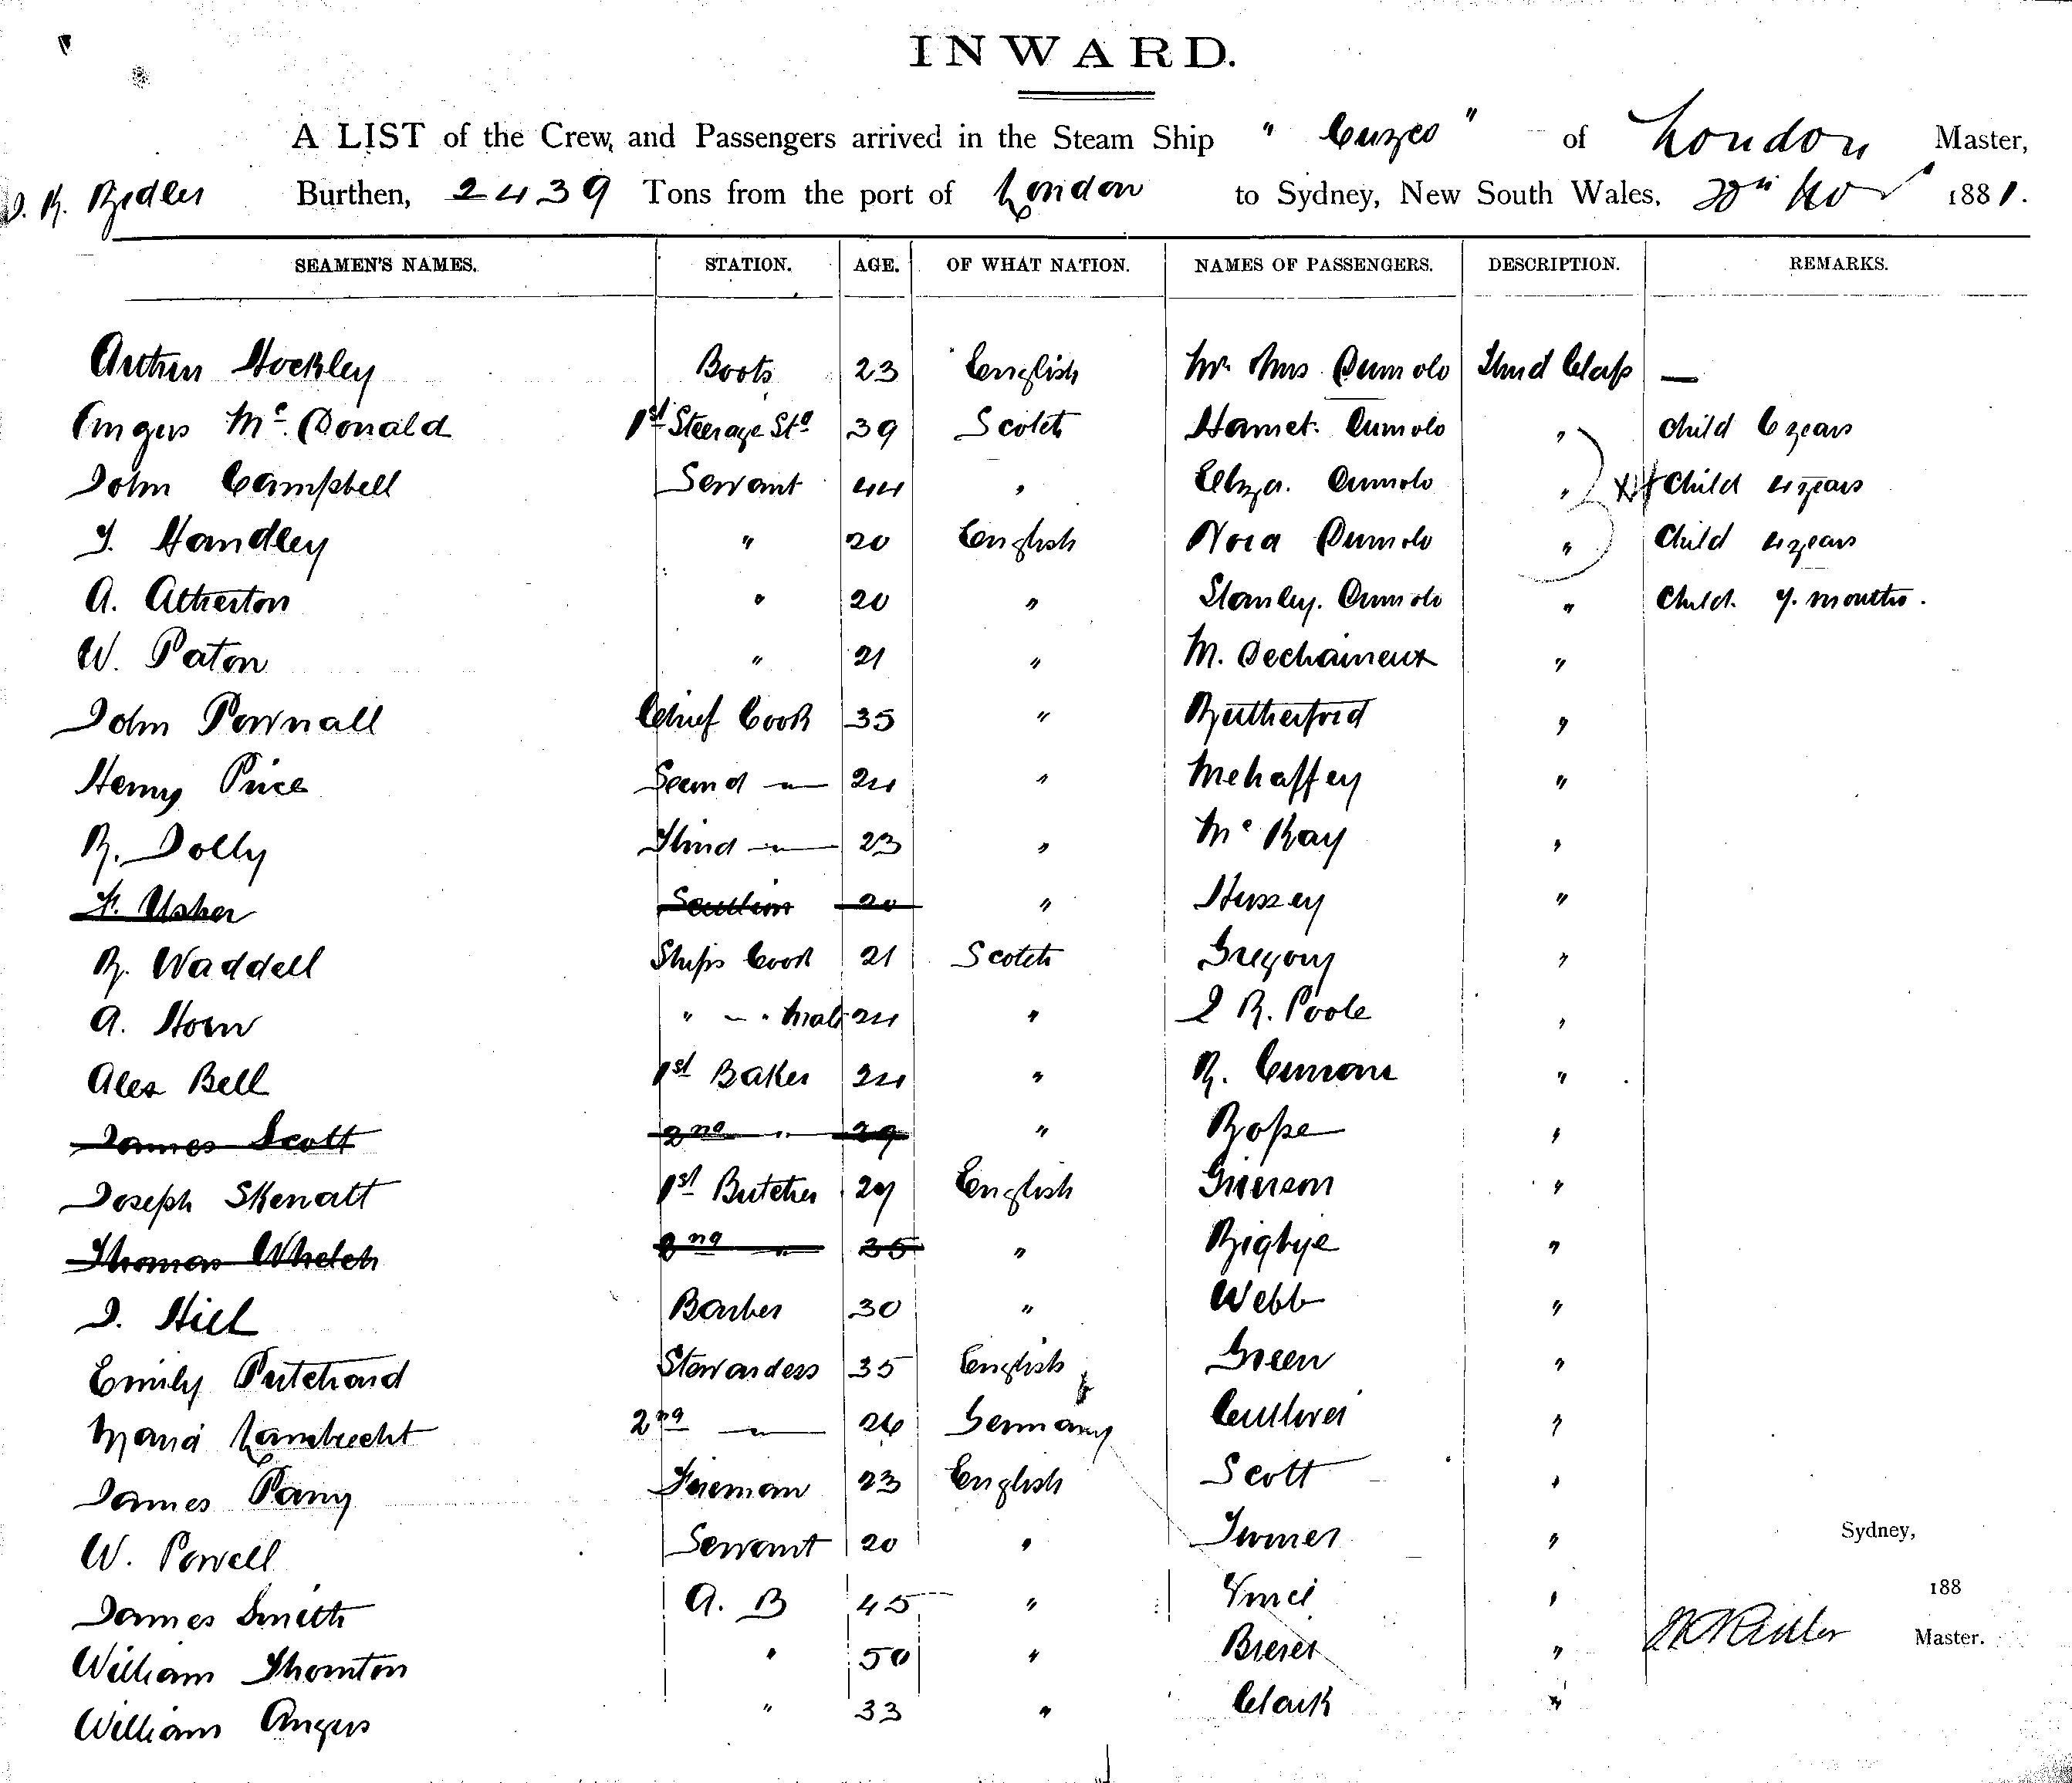 INWARD.
A LIST of the Crew, and Passengers arrived in the Steam Ship " Cuzco " of London Master,
Burthen, 2439 Tons from the port of London to Sydney, New South Wales, Nov 1881.
SEAMEN'S NAMES. STATION. AGE. OF WHAT NATION. NAMES OF PASSENGERS. DESCRIPTION. REMARKS.
Arthur Hockley Boots 23 English Mr. Mrs Dumolo Third Class —
Angus McDonald 1st Steerage Std 39 Scotch Harriet. Dumolo " Child 6 years
John Campbell Servant 44 " Eliza. Dumolo " Child 4 years
T. Handley " 20 English Nora Dumolo " Child 4 years
A. Atherton " 20 " Stanley. Dumolo " Child. 7. months.
W. Paton " 21 " M. Dechaineux "
John Pownall Chief Cook 35 " Rutherford "
Henry Price Second — " — 24 " Mehaffey "
R. Dolly Third — " — 23 " McKay "
F. Usher Scullion 20 " Hussey "
R. Waddell Ships Cook 21 Scotch Gregory "
A. Horn " — " Mate 24 " J R. Poole "
Alex Bell 1st Baker 24 " R. "
James Scott 2nd " 29 " Rope "
Joseph Skenatt 1st Butcher 29 English Grierson "
Thomas Whelch 2nd " 35 " Rigbye "
J. Hill Barber 30 " Webb "
Emily Pritchard Stewardess 35 English Green "
Maria Lambrecht 2nd — " — 26 Germany "
James Parry Fireman 23 English Scott "
W. Powell Servant 20 " Turner " Sydney,
James Smith A. B 45 " " 188
William Thornton " 50 " Brerer " Master.
William Angus " 33 " Clark "